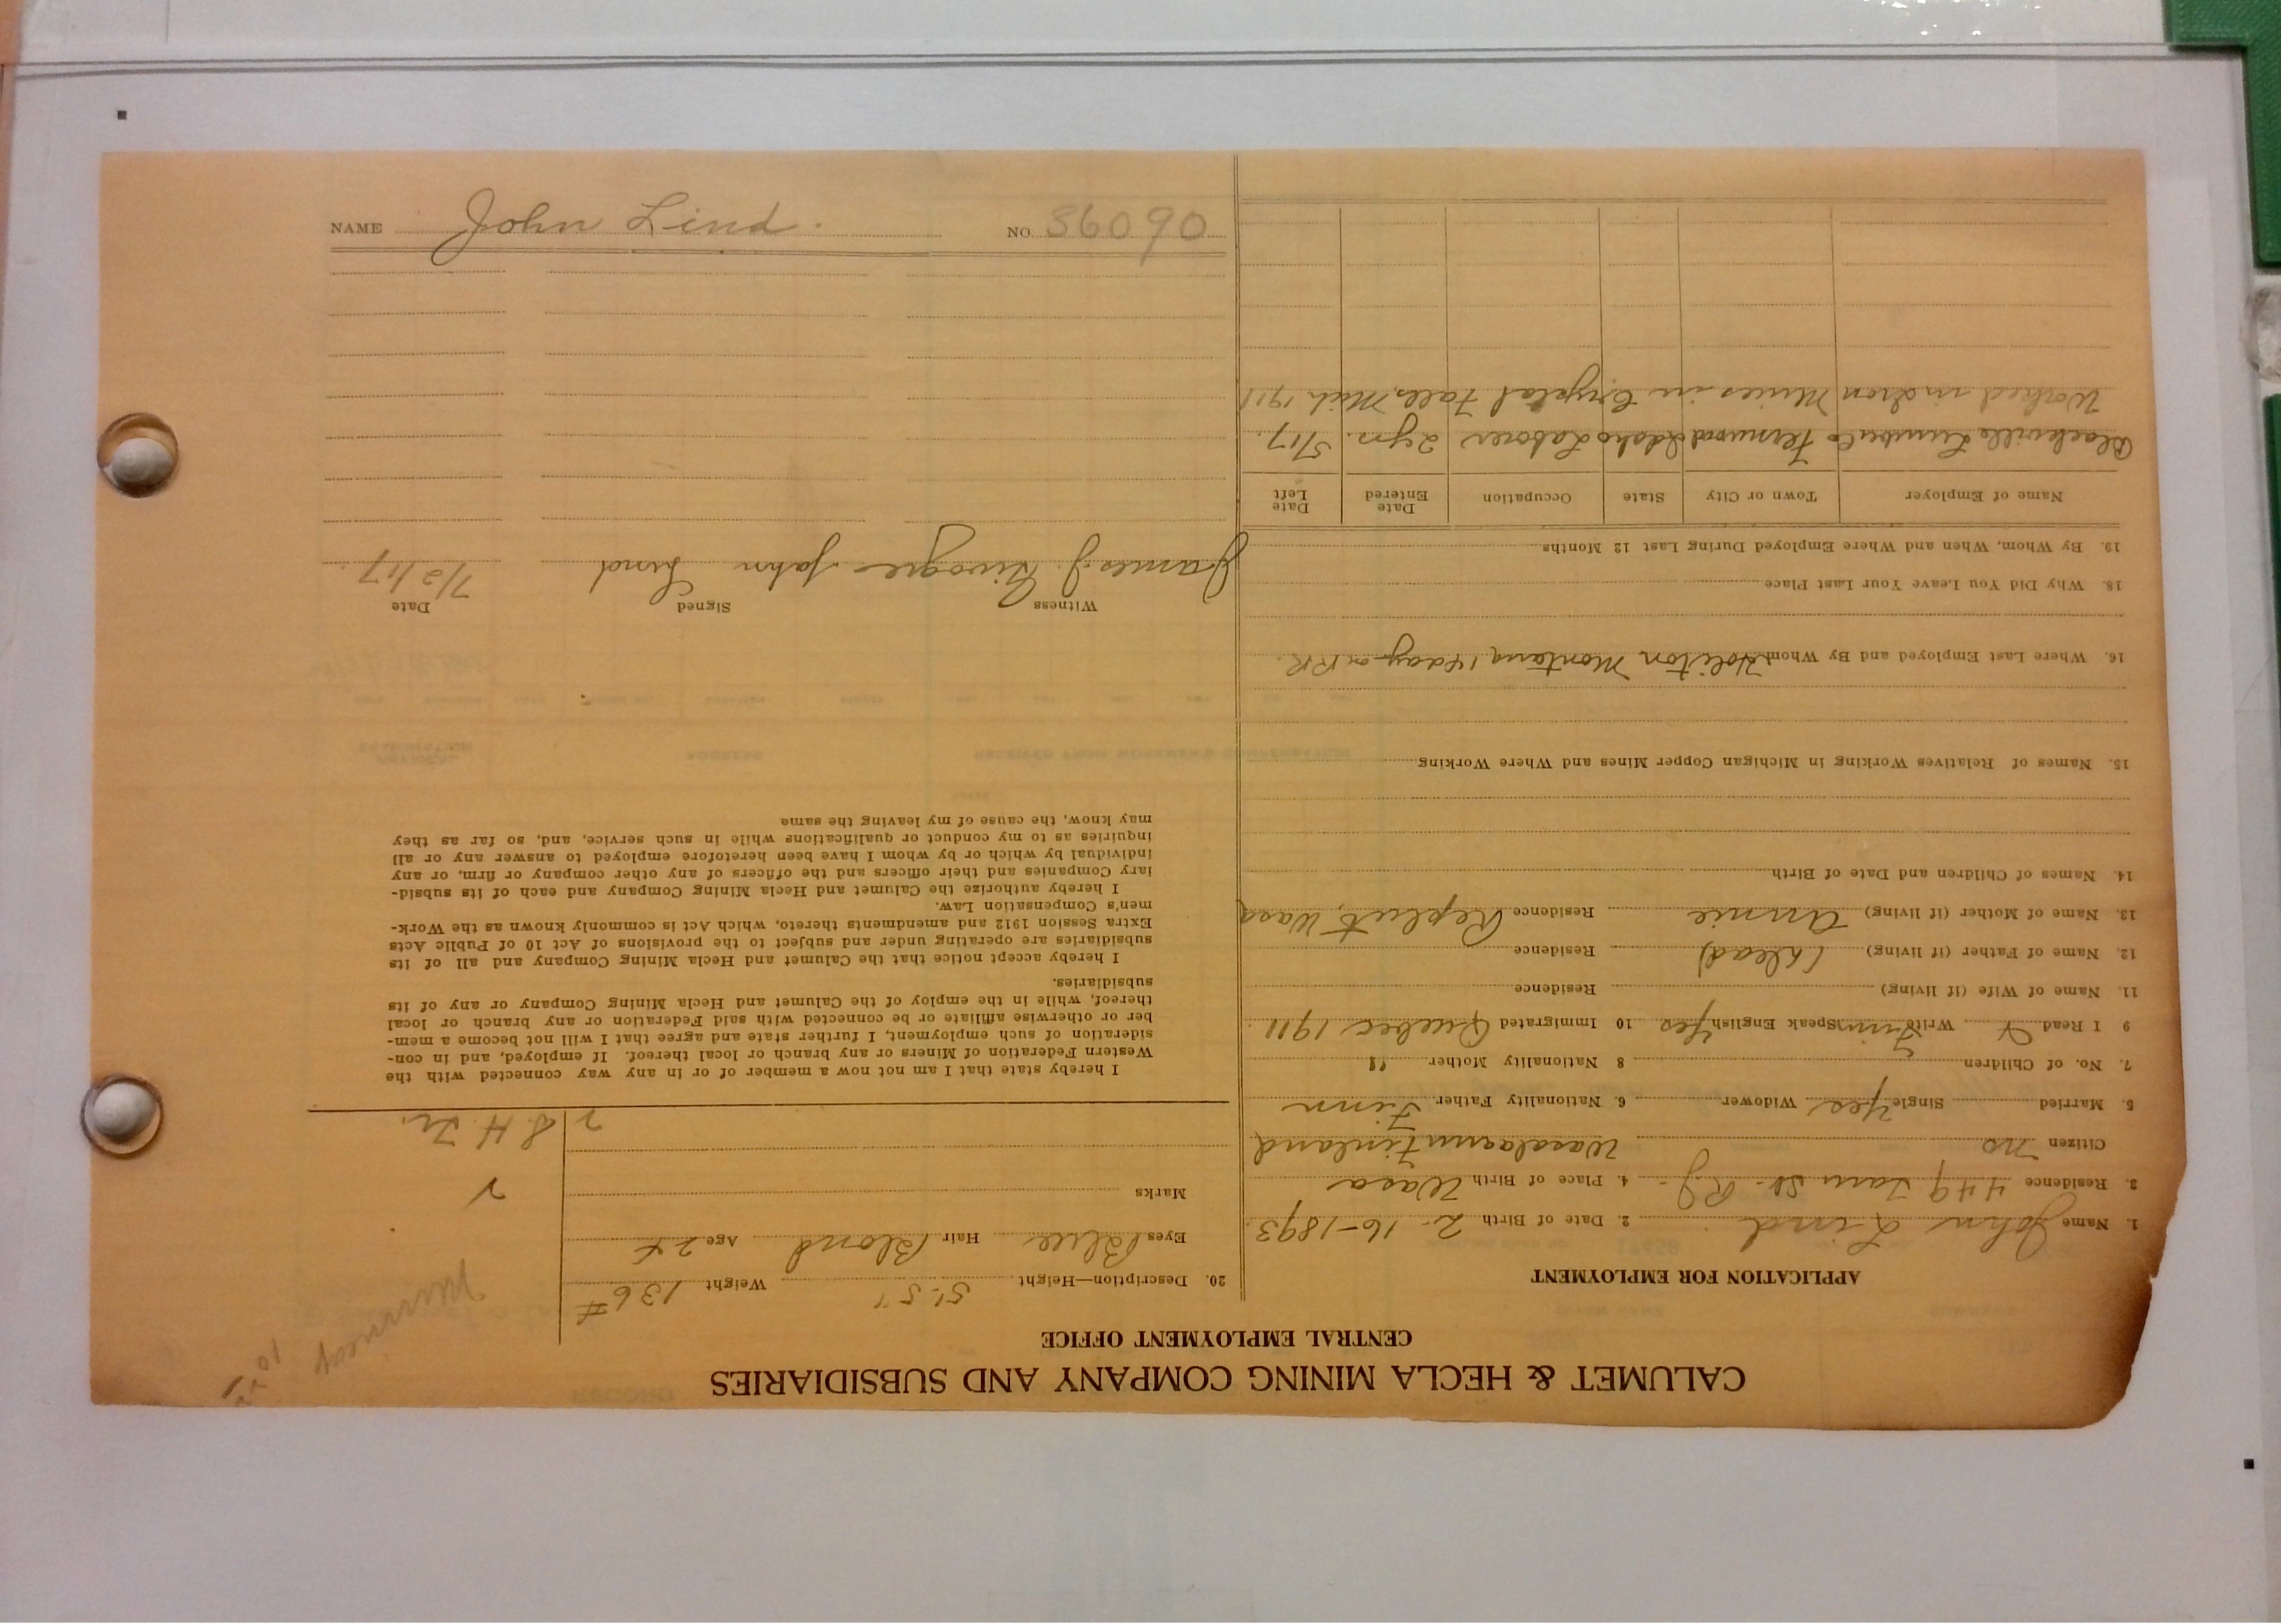 CALUMET & HECLA MINING COMPANY AND SUBSIDIARIES
CENTRAL EMPLOYMENT OFFICE
APPLICATION FOR EMPLOYMENT
1. Name John Lind 2. Date of Birth 2-16-1893.
3. Residence 449 Tam St. R.J. 4. Place of Birth Wasa
Citizen no Wasalaann Finland
5. Married Single Yes Widower 6. Nationality Father Finn
7. No. of Children 8 Nationality Mother "
9 I Read Y Write Finn Speak English Yes 10 Immigrated Quebec 1911
11. Name of Wife (if living) Residence
12. Name of Father (if living) (dead) Residence
13. Name of Mother (if living) Annie Residence Replut, Wasa
14. Names of Children and Date of Birth
15. Names of Relatives Working in Michigan Copper Mines and Where Working
16. Where Last Employed and By Whom Holiton Montana 14 day on RR.
18. Why Did You Leave Your Last Place
19. By Whom, When and Where Employed During Last 12 Months
Name of Employer Town or City State Occupation Date Entered Date Left
Blackville Lumber Co Fernwood Idaho Laborer 2 yrs. 5/17.
Worked in Iron Mines in Crystal Falls, Mich 1911
20. Description—Height 5'-5" Weight 136#
Eyes Blue Hair Blond Age 24
Marks
I hereby state that I am not now a member of or in any way connected with the
Western Federation of Miners or any branch or local thereof. If employed, and in con-
sideration of such employment, I further state and agree that I will not become a mem-
ber or otherwise affiliate or be connected with said Federation or any branch or local
thereof, while in the employ of the Calumet and Hecla Mining Company or any of its
subsidiaries.
I hereby accept notice that the Calumet and Hecla Mining Company and all of its
subsidiaries are operating under and subject to the provisions of Act 10 of Public Acts
Extra Session 1912 and amendments thereto, which Act is commonly known as the Work-
men's Compensation Law.
I hereby authorize the Calumet and Hecla Mining Company and each of its subsid-
iary Companies and their officers and the officers of any other company or firm, or any
individual by which or by whom I have been heretofore employed to answer any or all
inquiries as to my conduct or qualifications while in such service, and, so far as they
may know, the cause of my leaving the same
Witness Signed Date
James J. John Lind 7/2/17.
NAME John Lind. NO. 36090